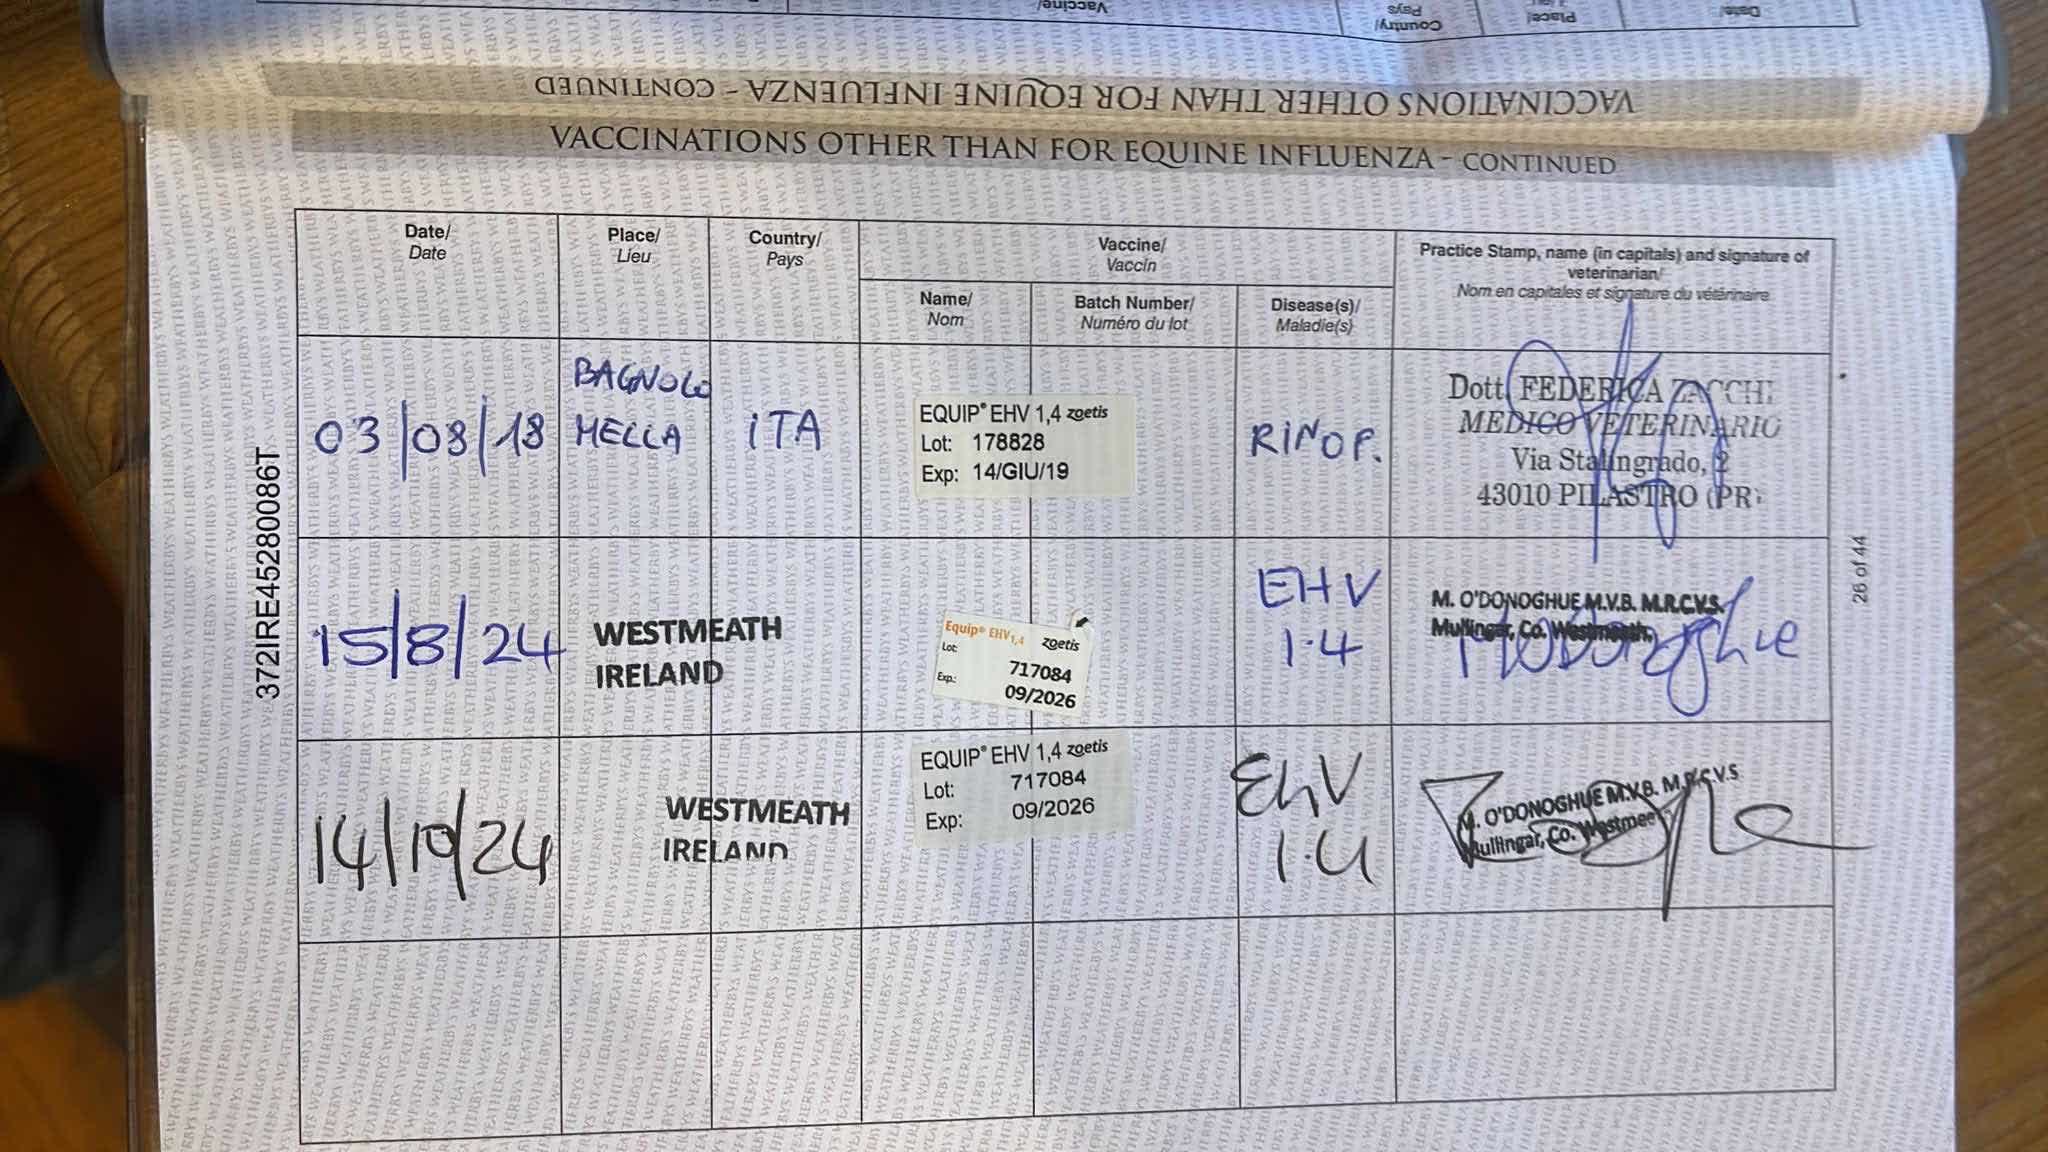 Vaccine/
Country/
Pays
Place/
Date/
VACCINATIONS OTHER THAN FOR EQUINE INFLUENZA - CONTINUED
VACCINATIONS OTHER THAN FOR EQUINE INFLUENZA - CONTINUED
Date/
Date
Place/
Lieu
Country/
Pays
Vaccine/
Vaccin
Name/
Nom
Batch Number/
Numéro du lot
Disease(s)/
Maladie(s)
Practice Stamp, name (in capitals) and signature of
veterinarian/
Nom en capitales et signature du vétérinaire
03/08/18
BAGNOLO
MELLA
ITA
EQUIP® EHV 1,4 zoetis
Lot: 178828
Exp: 14/GIU/19
RINOP.
Dott. FEDERICA ZACCHI
MEDICO VETERINARIO
Via Stalingrado, 2
43010 PILASTRO (PR)
15/8/24
WESTMEATH
IRELAND
Equip® EHV1,4 zoetis
Lot: 717084
Exp.: 09/2026
EHV
1.4
M. O'DONOGHUE M.V.B. M.R.C.V.S.
Mullingar, Co. Westmeath.
14/10/24
WESTMEATH
IRELAND
EQUIP® EHV 1,4 zoetis
Lot: 717084
Exp: 09/2026
EhV
1.4
M. O'DONOGHUE M.V.B. M.R.C.V.S
Mullingar, Co. Westmeath
372IRE45280086T
26 of 44
WEATHERBYS